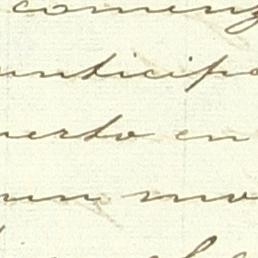 comenz
anticipa
uerto en
un mo